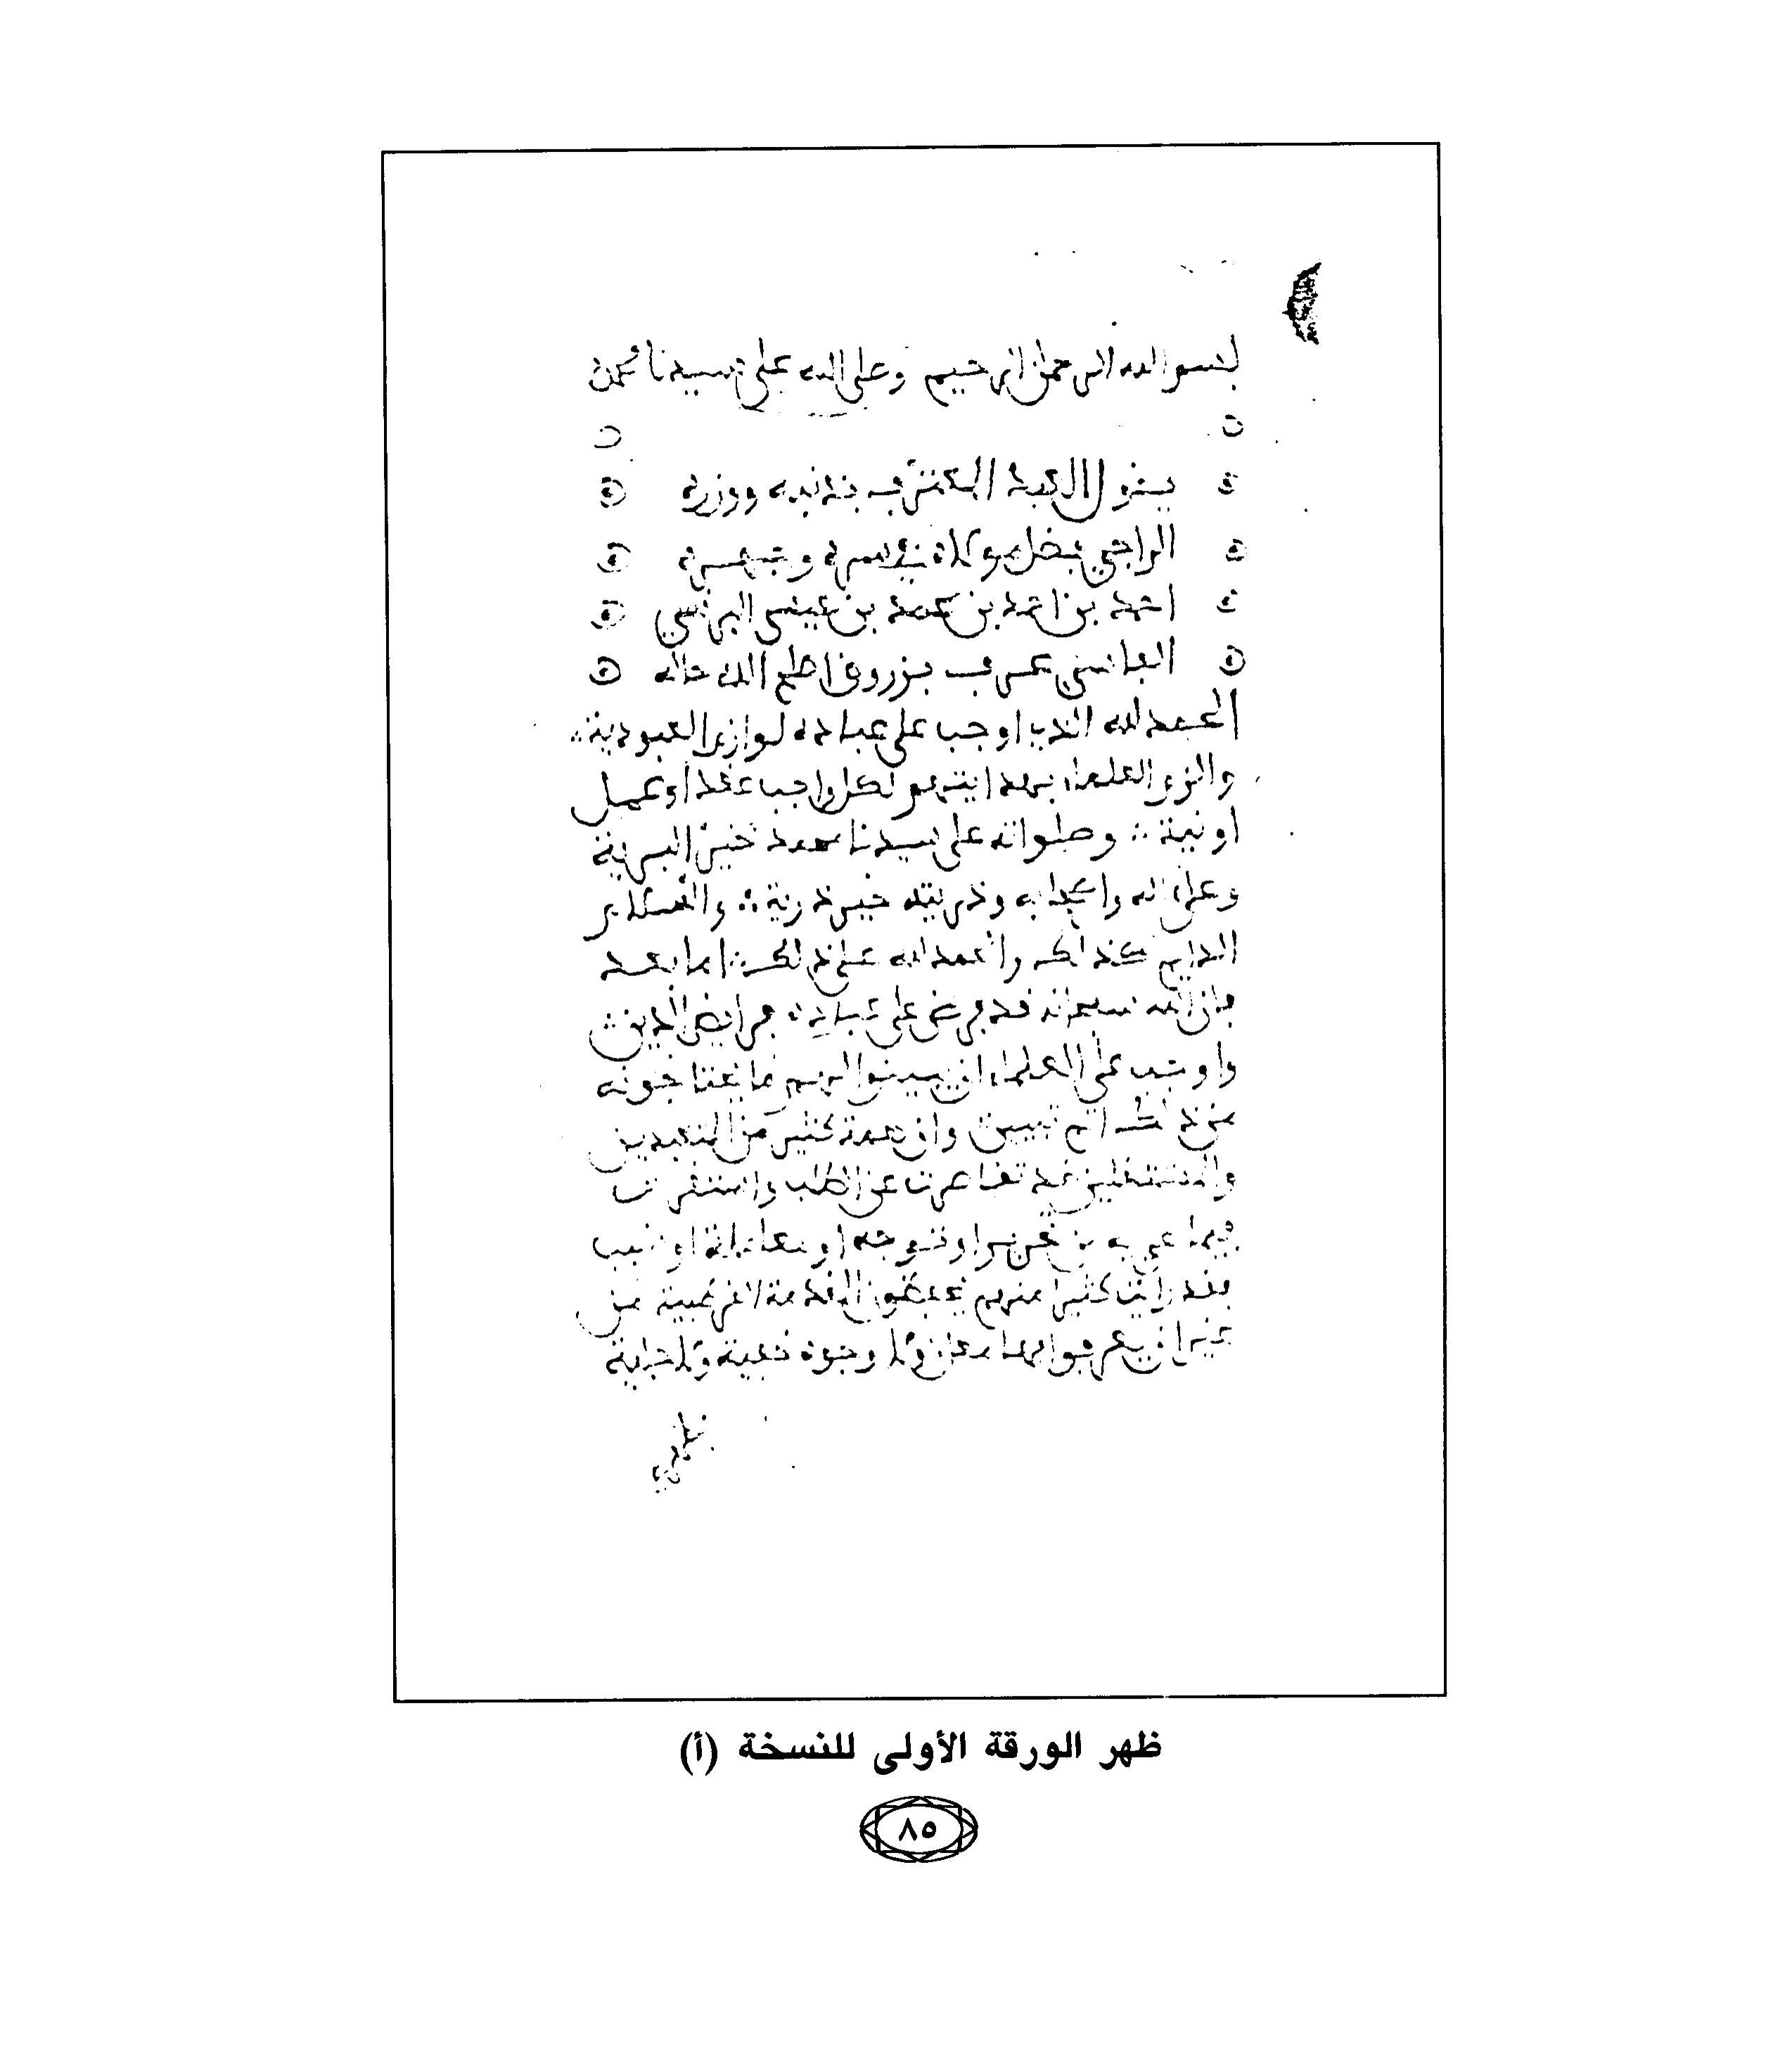 بسم الله الرحمن الرحيم وصلى الله على سيدنا محمد
يقول العبد المعترف بذنبه ووزره
الراجي فضل مولاه في سره وجهره
احمد بن احمد بن محمد بن عيسى البرنسي
الفاسي عرف بزروق اصلح الله حاله
الحمد لله الذي اوجب على عباده لوازم العبودية
والزم العلماء بهدايتهم لكل واجب عقد او عمل
او نية وصلواته على سيدنا محمد خير البرية
وعلى اله واصحابه وذريته خير ذرية والسلام
الدايم كذلك والحمد لله على ذلك اما بعد
فان الله سبحانه قد فرض على عباده فرايض الدين
واوجب على العلماء ان يبينوا لهم ما يحتاجونه
من ذلك اتم تبيين وان همة كثير من المتعبدين
والمشتغلين قد تقاصرت عن الطلب واستقرت
فيما هي به من او توجه او او
فقد رايت كثيرا منهم يحفظون المقدمة القرطبية من
غير ان يعرفوا لها معان ولا وجوه فقهية ولا
ظهر الورقة الأولى للنسخة (أ)
٨٥